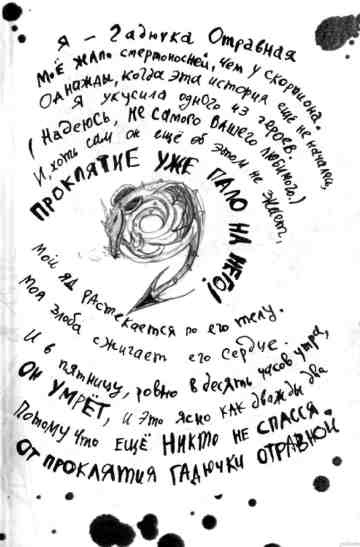 Я – Гадючка Отравная
Моё жало смертоносней, чем у скорпиона.
Однажды, когда эта история ещё не началась,
Я укусила одного из героев.
(Надеюсь, не самого вашего любимого.)
И, хоть сам он ещё об этом не знает,
ПРОКЛЯТИЕ УЖЕ ПАЛО НА НЕГО!
Мой яд растекается по его телу.
Моя злоба сжигает его сердце.
И в пятницу, ровно в десять часов утра,
ОН УМРЁТ, и это ясно как дважды два
Потому что ЕЩЁ НИКТО НЕ СПАССЯ
ОТ ПРОКЛЯТИЯ ГАДЮЧКИ ОТРАВНОЙ